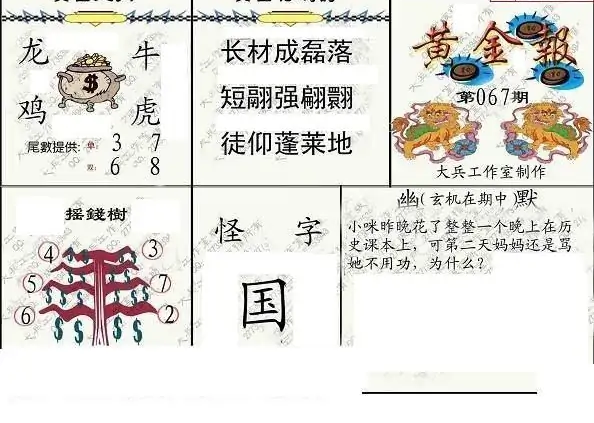 龙 牛
鸡 虎
尾數提供: 单: 3 7
双: 6 8
长材成磊落
短翮强翩翾
徒仰蓬莱地
黄金報
第067期
大兵工作室制作
摇錢樹
4 3
5 7
6 2
怪 字
国
幽(玄机在期中)默
小咪昨晚花了整整一个晚上在历
史课本上，可第二天妈妈还是骂
她不用功，为什么？